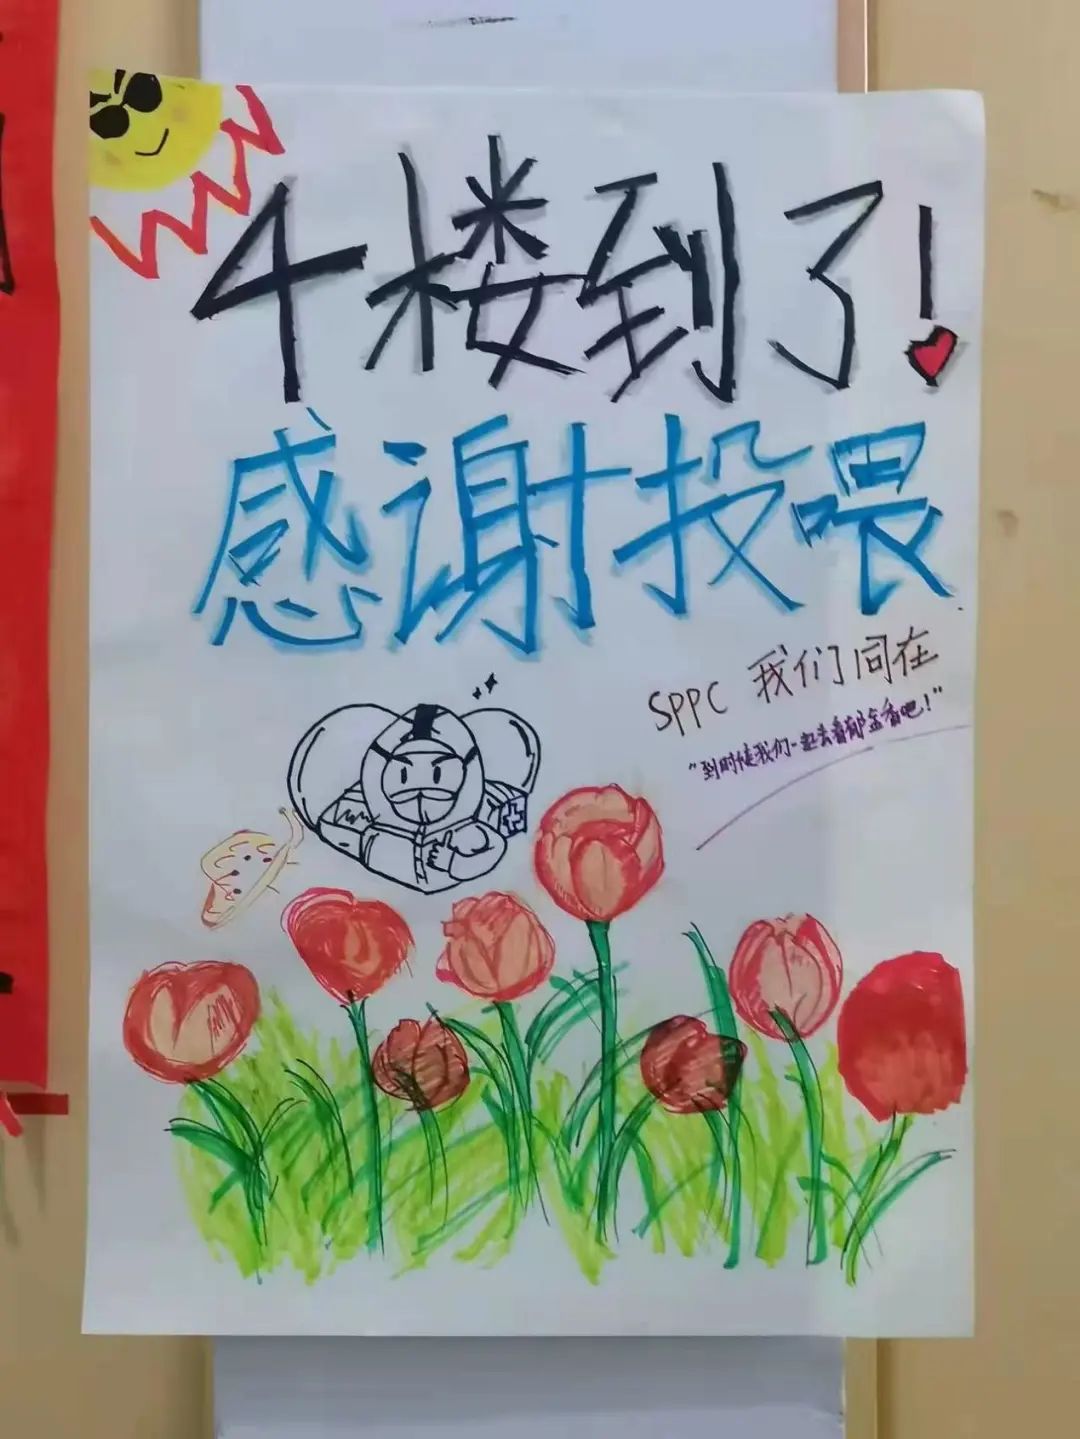 4楼到了!
感谢投喂
SPPC 我们同在
“到时候我们一起去看郁金香吧!”